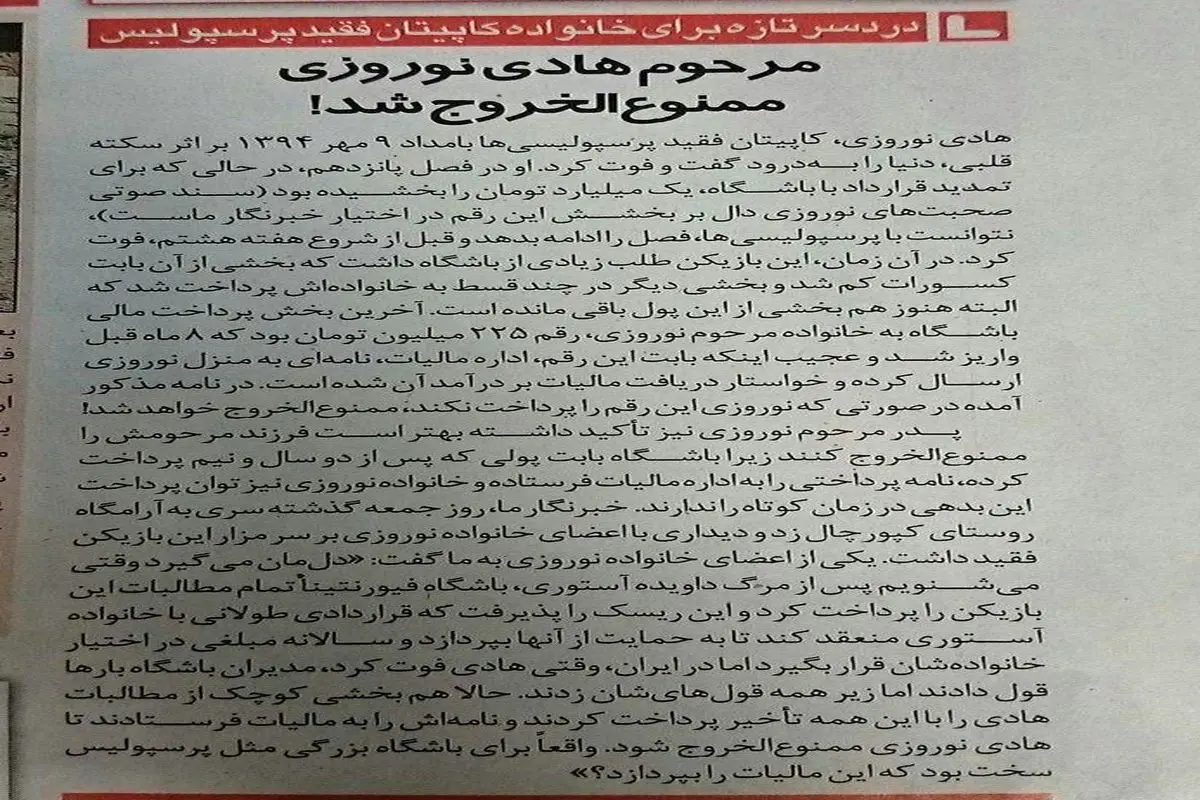 دردسر تازه برای خانواده کاپیتان فقید پرسپولیس
مرحوم هادی نوروزی
ممنوع‌الخروج شد!
هادی نوروزی، کاپیتان فقید پرسپولیسی‌ها بامداد ۹ مهر ۱۳۹۴ بر اثر سکته
قلبی، دنیا را به‌درود گفت و فوت کرد. او در فصل پانزدهم، در حالی که برای
تمدید قرارداد با باشگاه، یک میلیارد تومان را بخشیده بود (سند صوتی
صحبت‌های نوروزی دال بر بخشش این رقم در اختیار خبرنگار ماست)،
نتوانست با پرسپولیسی‌ها، فصل را ادامه بدهد و قبل از شروع هفته هشتم، فوت
کرد. در آن زمان، این بازیکن طلب زیادی از باشگاه داشت که بخشی از آن بابت
کسورات کم شد و بخشی دیگر در چند قسط به خانواده‌اش پرداخت شد که
البته هنوز هم بخشی از این پول باقی مانده است. آخرین بخش پرداخت مالی
باشگاه به خانواده مرحوم نوروزی، رقم ۲۲۵ میلیون تومان بود که ۸ ماه قبل
واریز شد و عجیب اینکه بابت این رقم، اداره مالیات، نامه‌ای به منزل نوروزی
ارسال کرده و خواستار دریافت مالیات بر درآمد آن شده است. در نامه مذکور
آمده در صورتی که نوروزی این رقم را پرداخت نکند، ممنوع‌الخروج خواهد شد!
پدر مرحوم نوروزی نیز تأکید داشته بهتر است فرزند مرحومش را
ممنوع‌الخروج کنند زیرا باشگاه بابت پولی که پس از دو سال و نیم پرداخت
کرده، نامه پرداختی را به اداره مالیات فرستاده و خانواده نوروزی نیز توان پرداخت
این بدهی در زمان کوتاه را ندارند. خبرنگار ما، روز جمعه گذشته سری به آرامگاه
روستای کپورچال زد و دیداری با اعضای خانواده نوروزی بر سر مزار این بازیکن
فقید داشت. یکی از اعضای خانواده نوروزی به ما گفت: «دل‌مان می‌گیرد وقتی
می‌شنویم پس از مرگ داویده آستوری، باشگاه فیورنتینا تمام مطالبات این
بازیکن را پرداخت کرد و این ریسک را پذیرفت که قراردادی طولانی با خانواده
آستوری منعقد کند تا به حمایت از آنها بپردازد و سالانه مبلغی در اختیار
خانواده‌شان قرار بگیرد اما در ایران، وقتی هادی فوت کرد، مدیران باشگاه بارها
قول دادند اما زیر همه قول‌های‌شان زدند. حالا هم بخشی کوچک از مطالبات
هادی را با این همه تأخیر پرداخت کردند و نامه‌اش را به مالیات فرستادند تا
هادی نوروزی ممنوع‌الخروج شود. واقعاً برای باشگاه بزرگی مثل پرسپولیس
سخت بود که این مالیات را بپردازد؟»